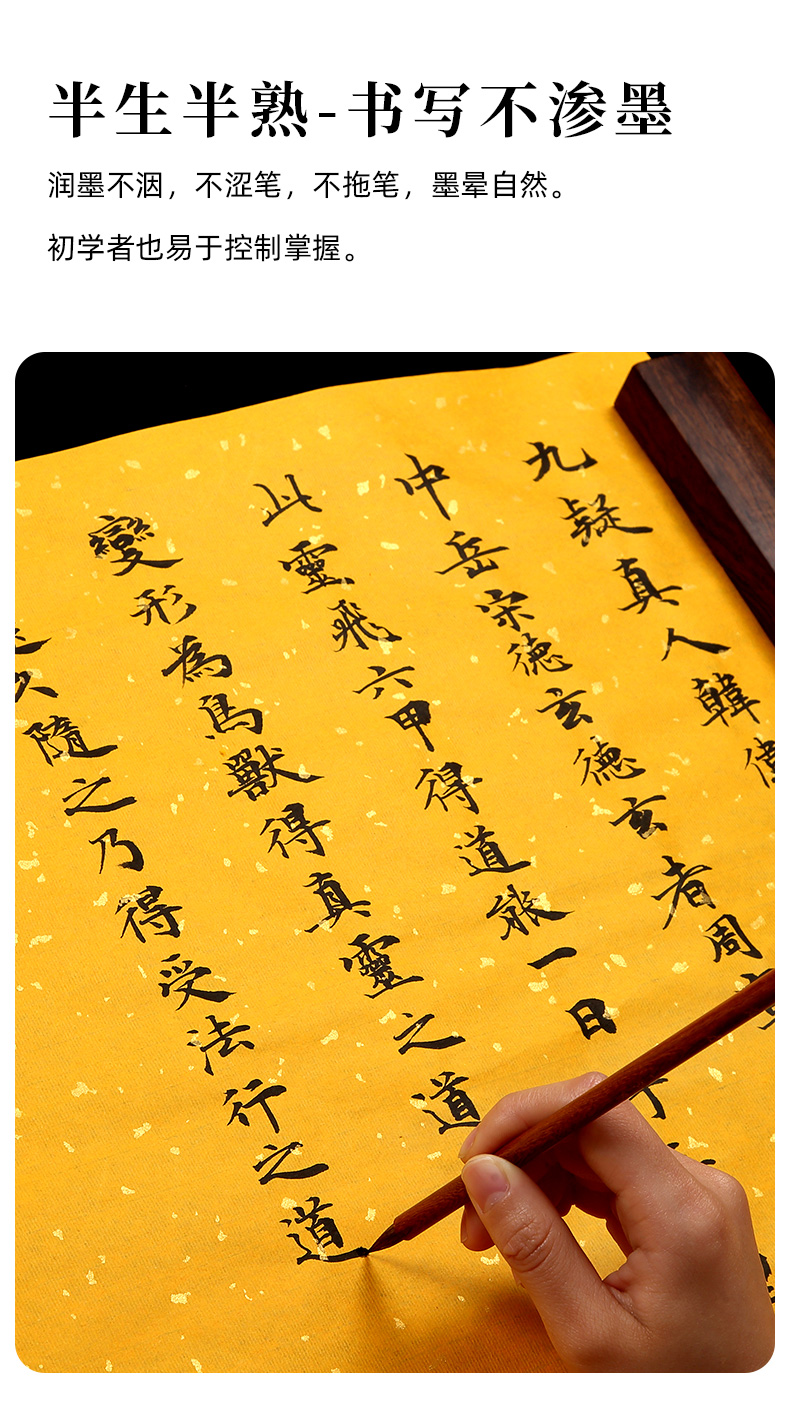 半生半熟-书写不渗墨
润墨不洇，不涩笔，不拖笔，墨晕自然。
初学者也易于控制掌握。
九疑真人韓偉
中岳宗德玄德玄者周
此靈飛六甲得道能一日
變形為鳥獸得真靈之道
隨之乃得受法行之道